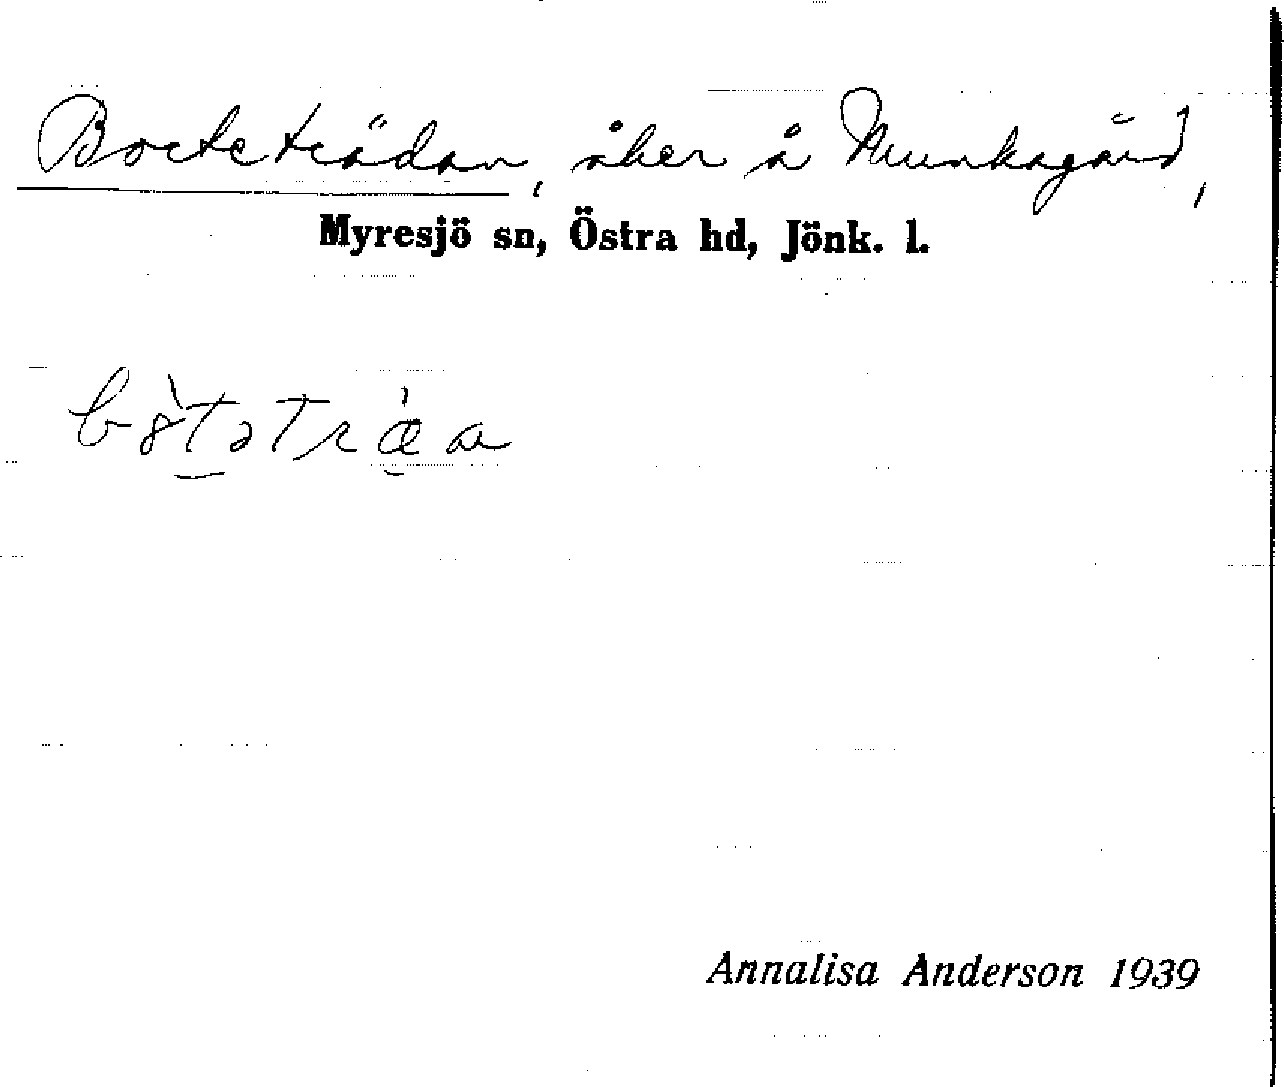 Borteträdan, åker å Munkagård,
Myresjö sn, Östra hd, Jönk. l.
Annalisa Anderson 1939